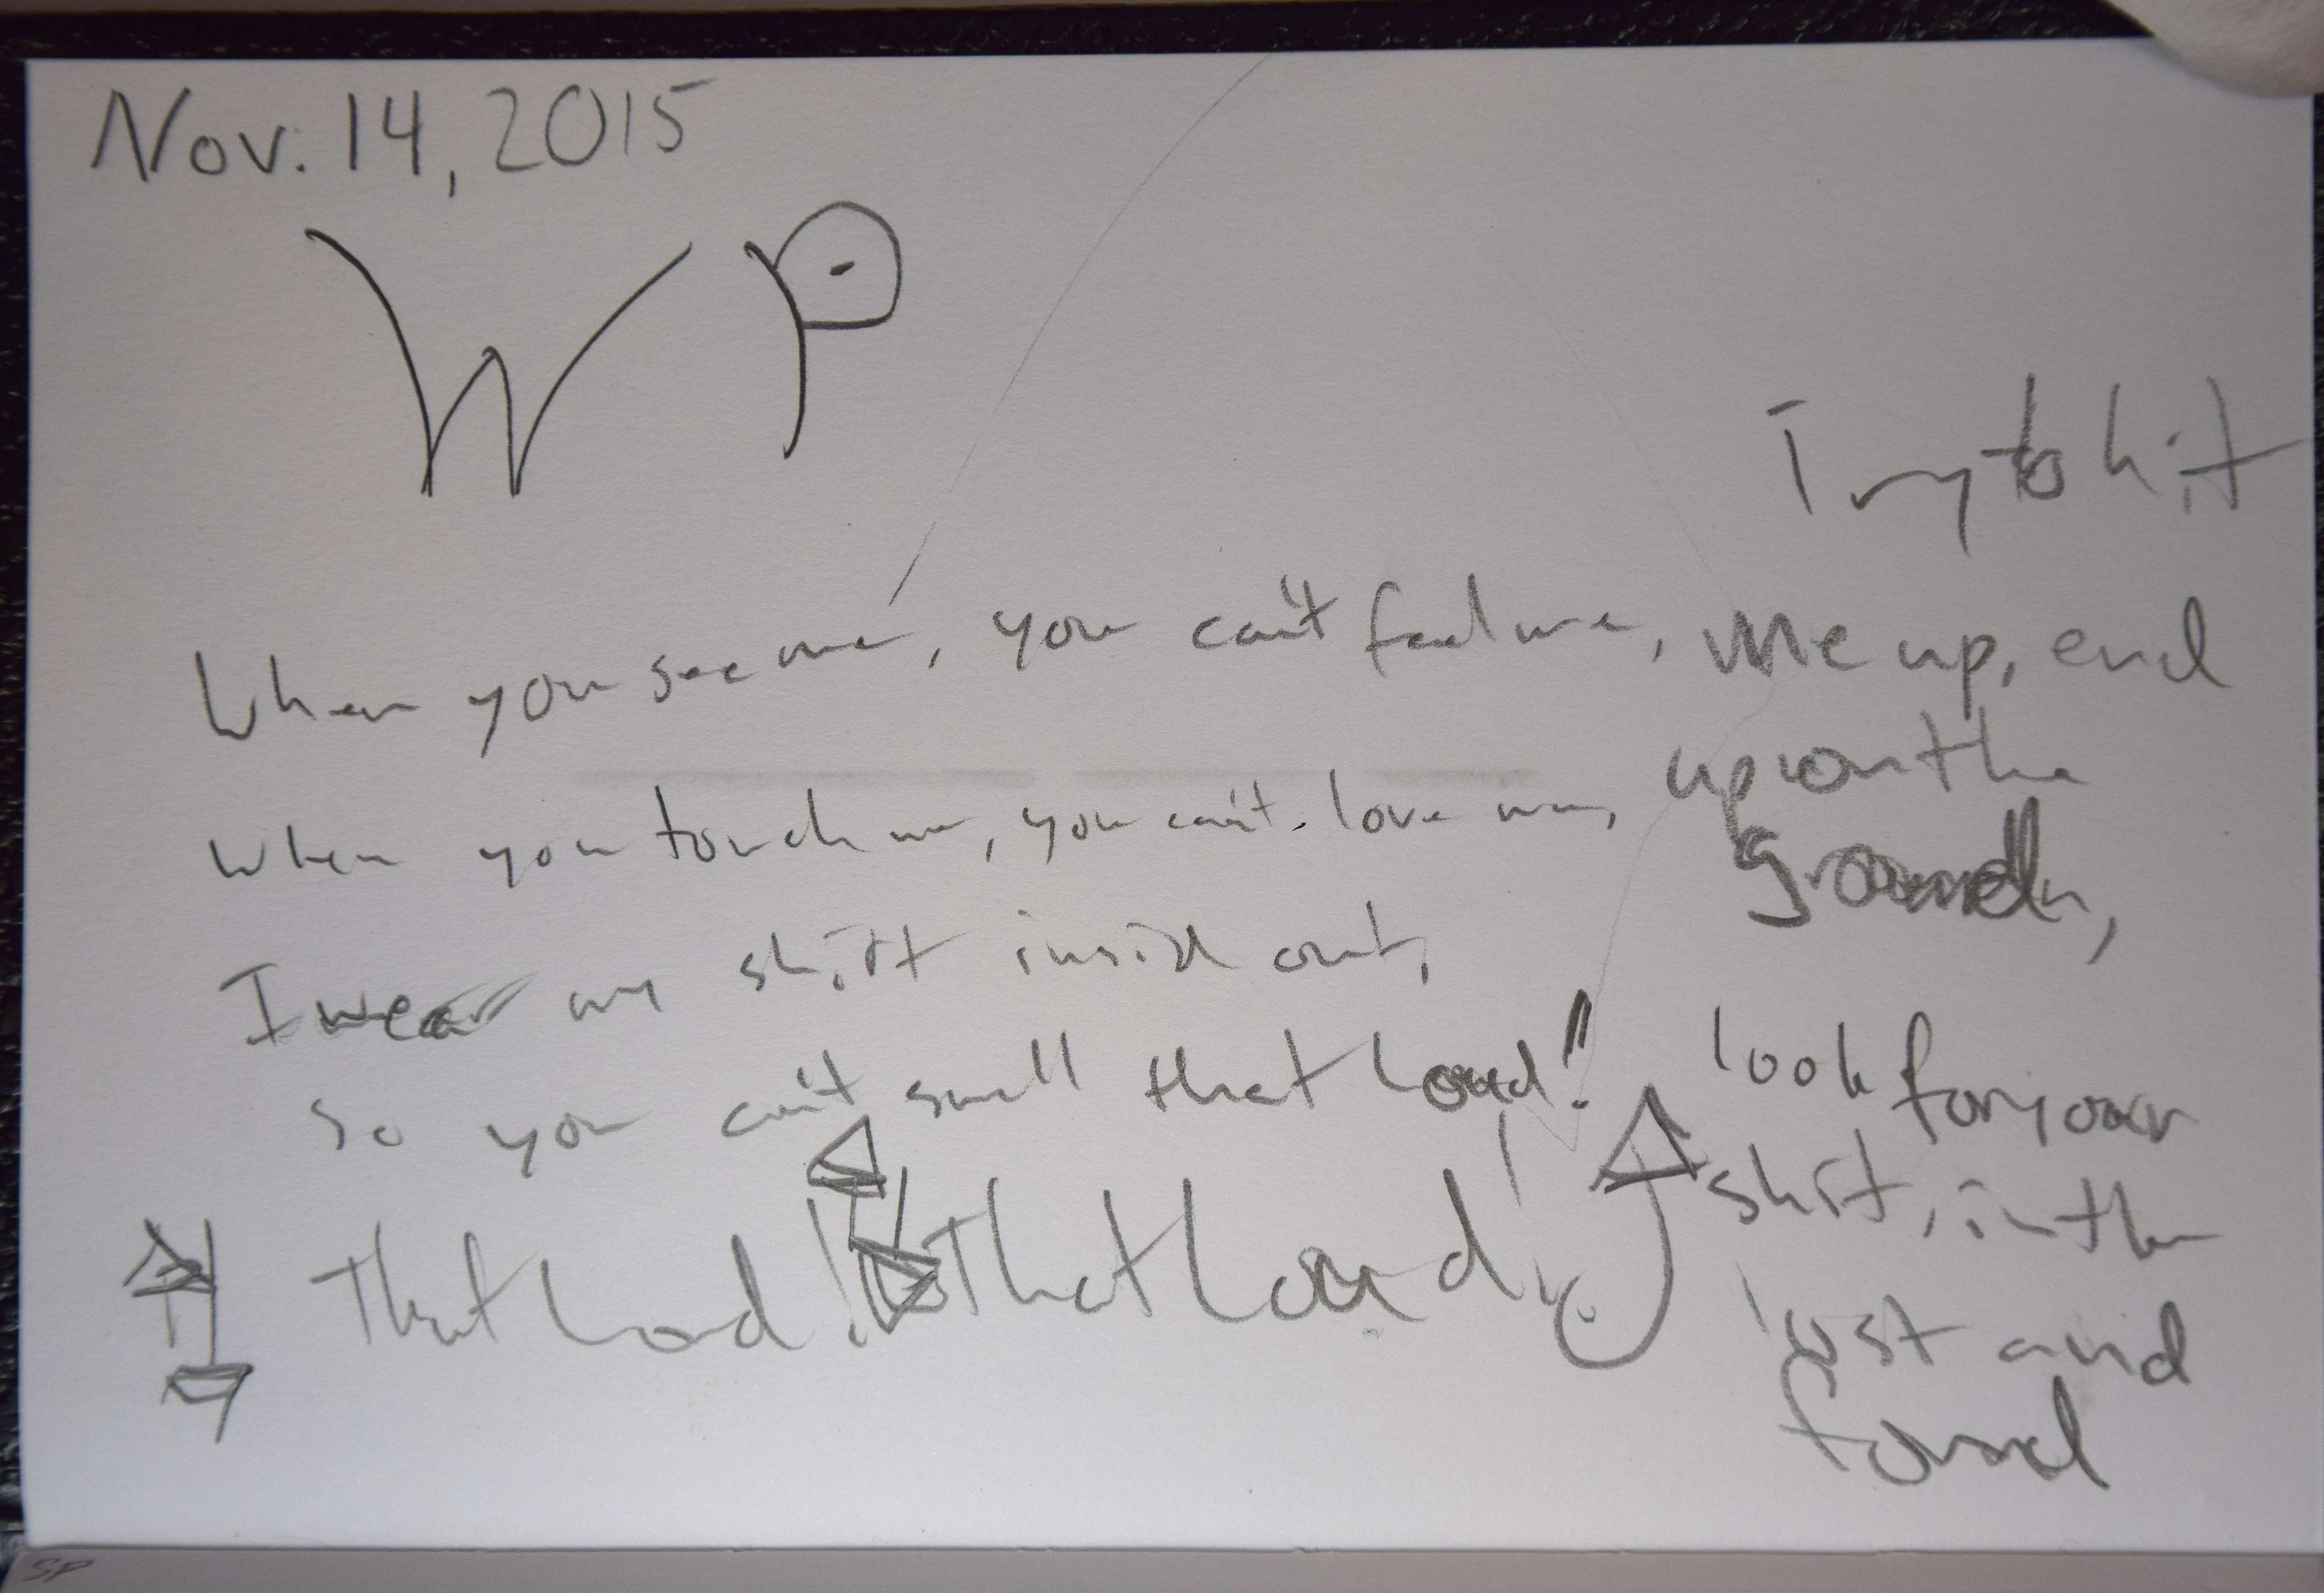 Nov. 14, 2015
W P
When you see me, you can't feel me,
When you touch me, you can't love me,
I wear my shirt inside out,
So you can't smell that loud!!
That Loud! That Loud!
Try to hit
Me up, end
up on the
ground,
look for your
shirt, in the
lost and
found
SP